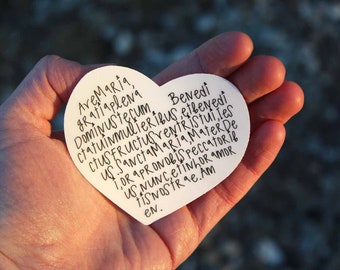 Ave Maria
gratia plena
Dominus tecum Benedi
cta tu in mulieribus et benedi
ctus fructus ventris tui Ies
us Sancta Maria Mater De
i ora pro nobis peccatorib
us nunc et in hor a mor
tis nostrae. Am
en.